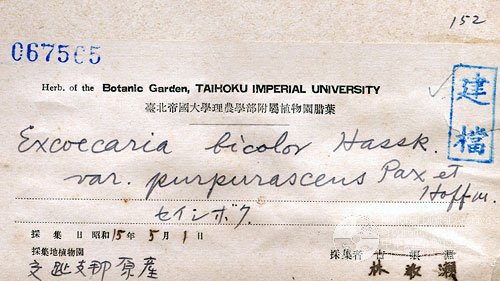 152
067565
Herb. of the Botanic Garden, TAIHOKU IMPERIAL UNIVERSITY
臺北帝國大學理農學部附屬植物園腊葉
建檔
Excoecaria bicolor Hassk.
var. purpurascens Pax et Hoffm.
セイシボク
採集日昭和15年5月1日
採集地植物園 採集者
交趾支那原產 林